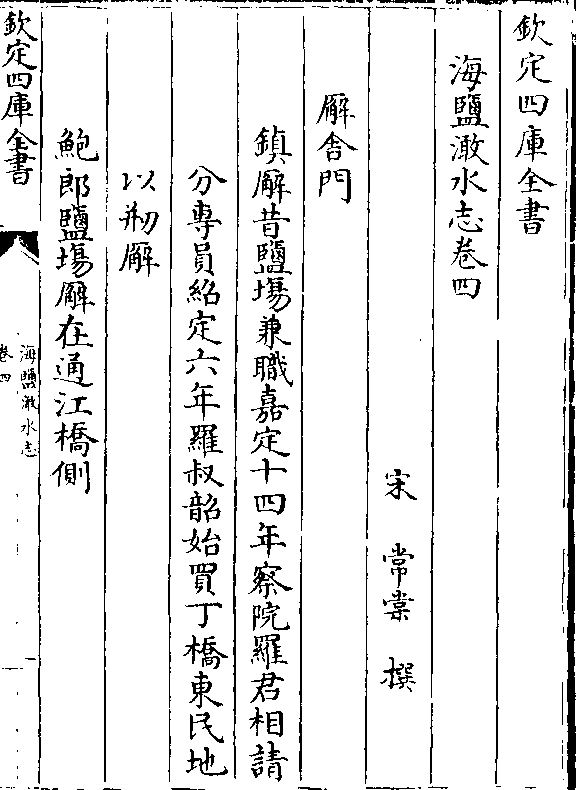 欽定四庫全書
海鹽澉水志卷四
宋 常棠 撰
廨舍門
鎮廨昔鹽場兼職嘉定十四年察院羅君相請
分專員紹定六年羅叔韶始買丁橋東民地
以剏廨
鮑郎鹽場廨在通江橋側
欽定四庫全書
海鹽澉水志
卷四